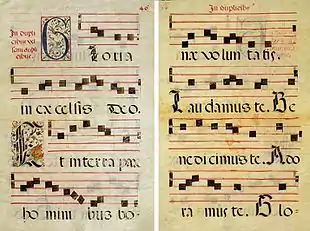 In dupli
46
G
loria
in excelsis Deo.
Et in terra pax
homini bus bo-
In duplicibus
næ volun tatis.
Lau damus te. Be
nedicimus te. Ado
ra mus te. Glo-